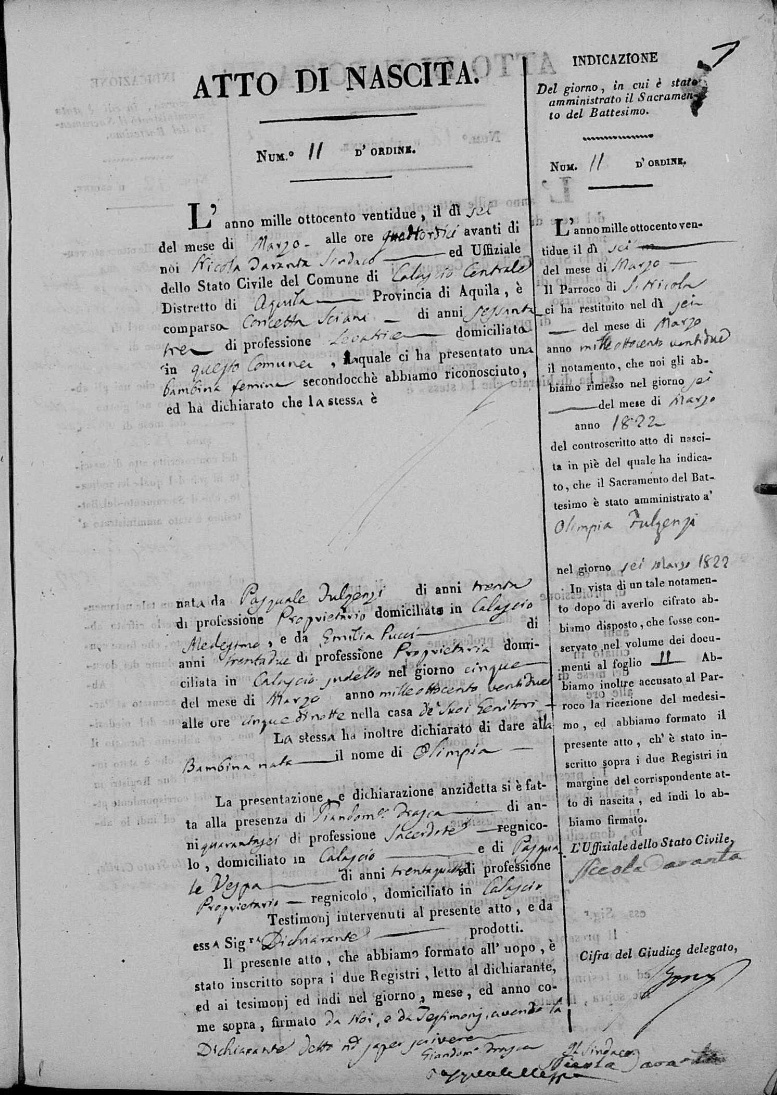 ATTO DI NASCITA.
NUM.º 11 D' ORDINE.
L' anno mille ottocento ventidue, il dì sei
del mese di Marzo alle ore quattordici avanti di
noi Nicola Daranta Sindaco ed Uffiziale
dello Stato Civile del Comune di Calascio Centrale
Distretto di Aquila Provincia di Aquila, è
comparsa Concetta di anni sessanta
tre di professione Levatrice domiciliata
in questo Comune, laquale ci ha presentato una
bambina femina secondocchè abbiamo riconosciuto,
ed ha dichiarato che la stessa è
nata da Pasquale Fulgenzi di anni trenta
di professione Proprietario domiciliato in Calascio
Medesimo, e da Emilia Pucci di
anni trentadue di professione Proprietaria domi-
ciliata in Calascio sudetto nel giorno cinque
del mese di Marzo anno mille ottocento ventidue
alle ore cinque di notte nella casa de' suoi Genitori
La stessa ha inoltre dichiarato di dare alla
Bambina nata il nome di Olimpia
La presentazione, e dichiarazione anzidetta si è fat-
ta alla presenza di Giandom.co Frasca di an-
ni quarantasei di professione Sacerdote regnico-
lo, domiciliato in Calascio e di Pasqua
le Vespa di anni trentaquattro di professione
Proprietario regnicolo, domiciliato in Calascio
Testimonj intervenuti al presente atto, e da
essa Sig.ra Dichiarante prodotti.
Il presente atto, che abbiamo formato all' uopo, è
stato inscritto sopra i due Registri, letto al dichiarante,
ed ai testimonj ed indi nel giorno, mese, ed anno co-
me sopra, firmato da Noi, e da Testimonj, avendo la
Dichiarante detto non saper scrivere
Giandom.co Frasca
Pasquale Vespa
Il Sindaco
Nicola Daranta
INDICAZIONE
Del giorno, in cui è stato
amministrato il Sacramen-
to del Battesimo.
NUM. 11 D' ORDINE.
L' anno mille ottocento ven-
tidue il dì sei
del mese di Marzo
Il Parroco di S. Nicola
ci ha restituito nel dì sei
del mese di Marzo
anno mille ottocento ventidue
il notamento, che noi gli ab-
biamo rimesso nel giorno sei
del mese di Marzo
anno 1822
del controscritto atto di nasci-
ta in piè del quale ha indica-
to, che il Sacramento del Bat-
tesimo è stato amministrato a'
Olimpia Fulgenzi
nel giorno sei Marzo 1822
In vista di un tale notamen-
to dopo di averlo cifrato ab-
biamo disposto, che fusse con-
servato nel volume dei docu-
menti al foglio 11 Ab-
biamo inoltre accusato al Par-
roco la ricezione del medesi-
mo, ed abbiamo formato il
presente atto, ch' è stato in-
scritto sopra i due Registri in
margine del corrispondente at-
to di nascita, ed indi lo ab-
biamo firmato.
L'Uffiziale dello Stato Civile,
Nicola Daranta
Cifra del Giudice delegato,